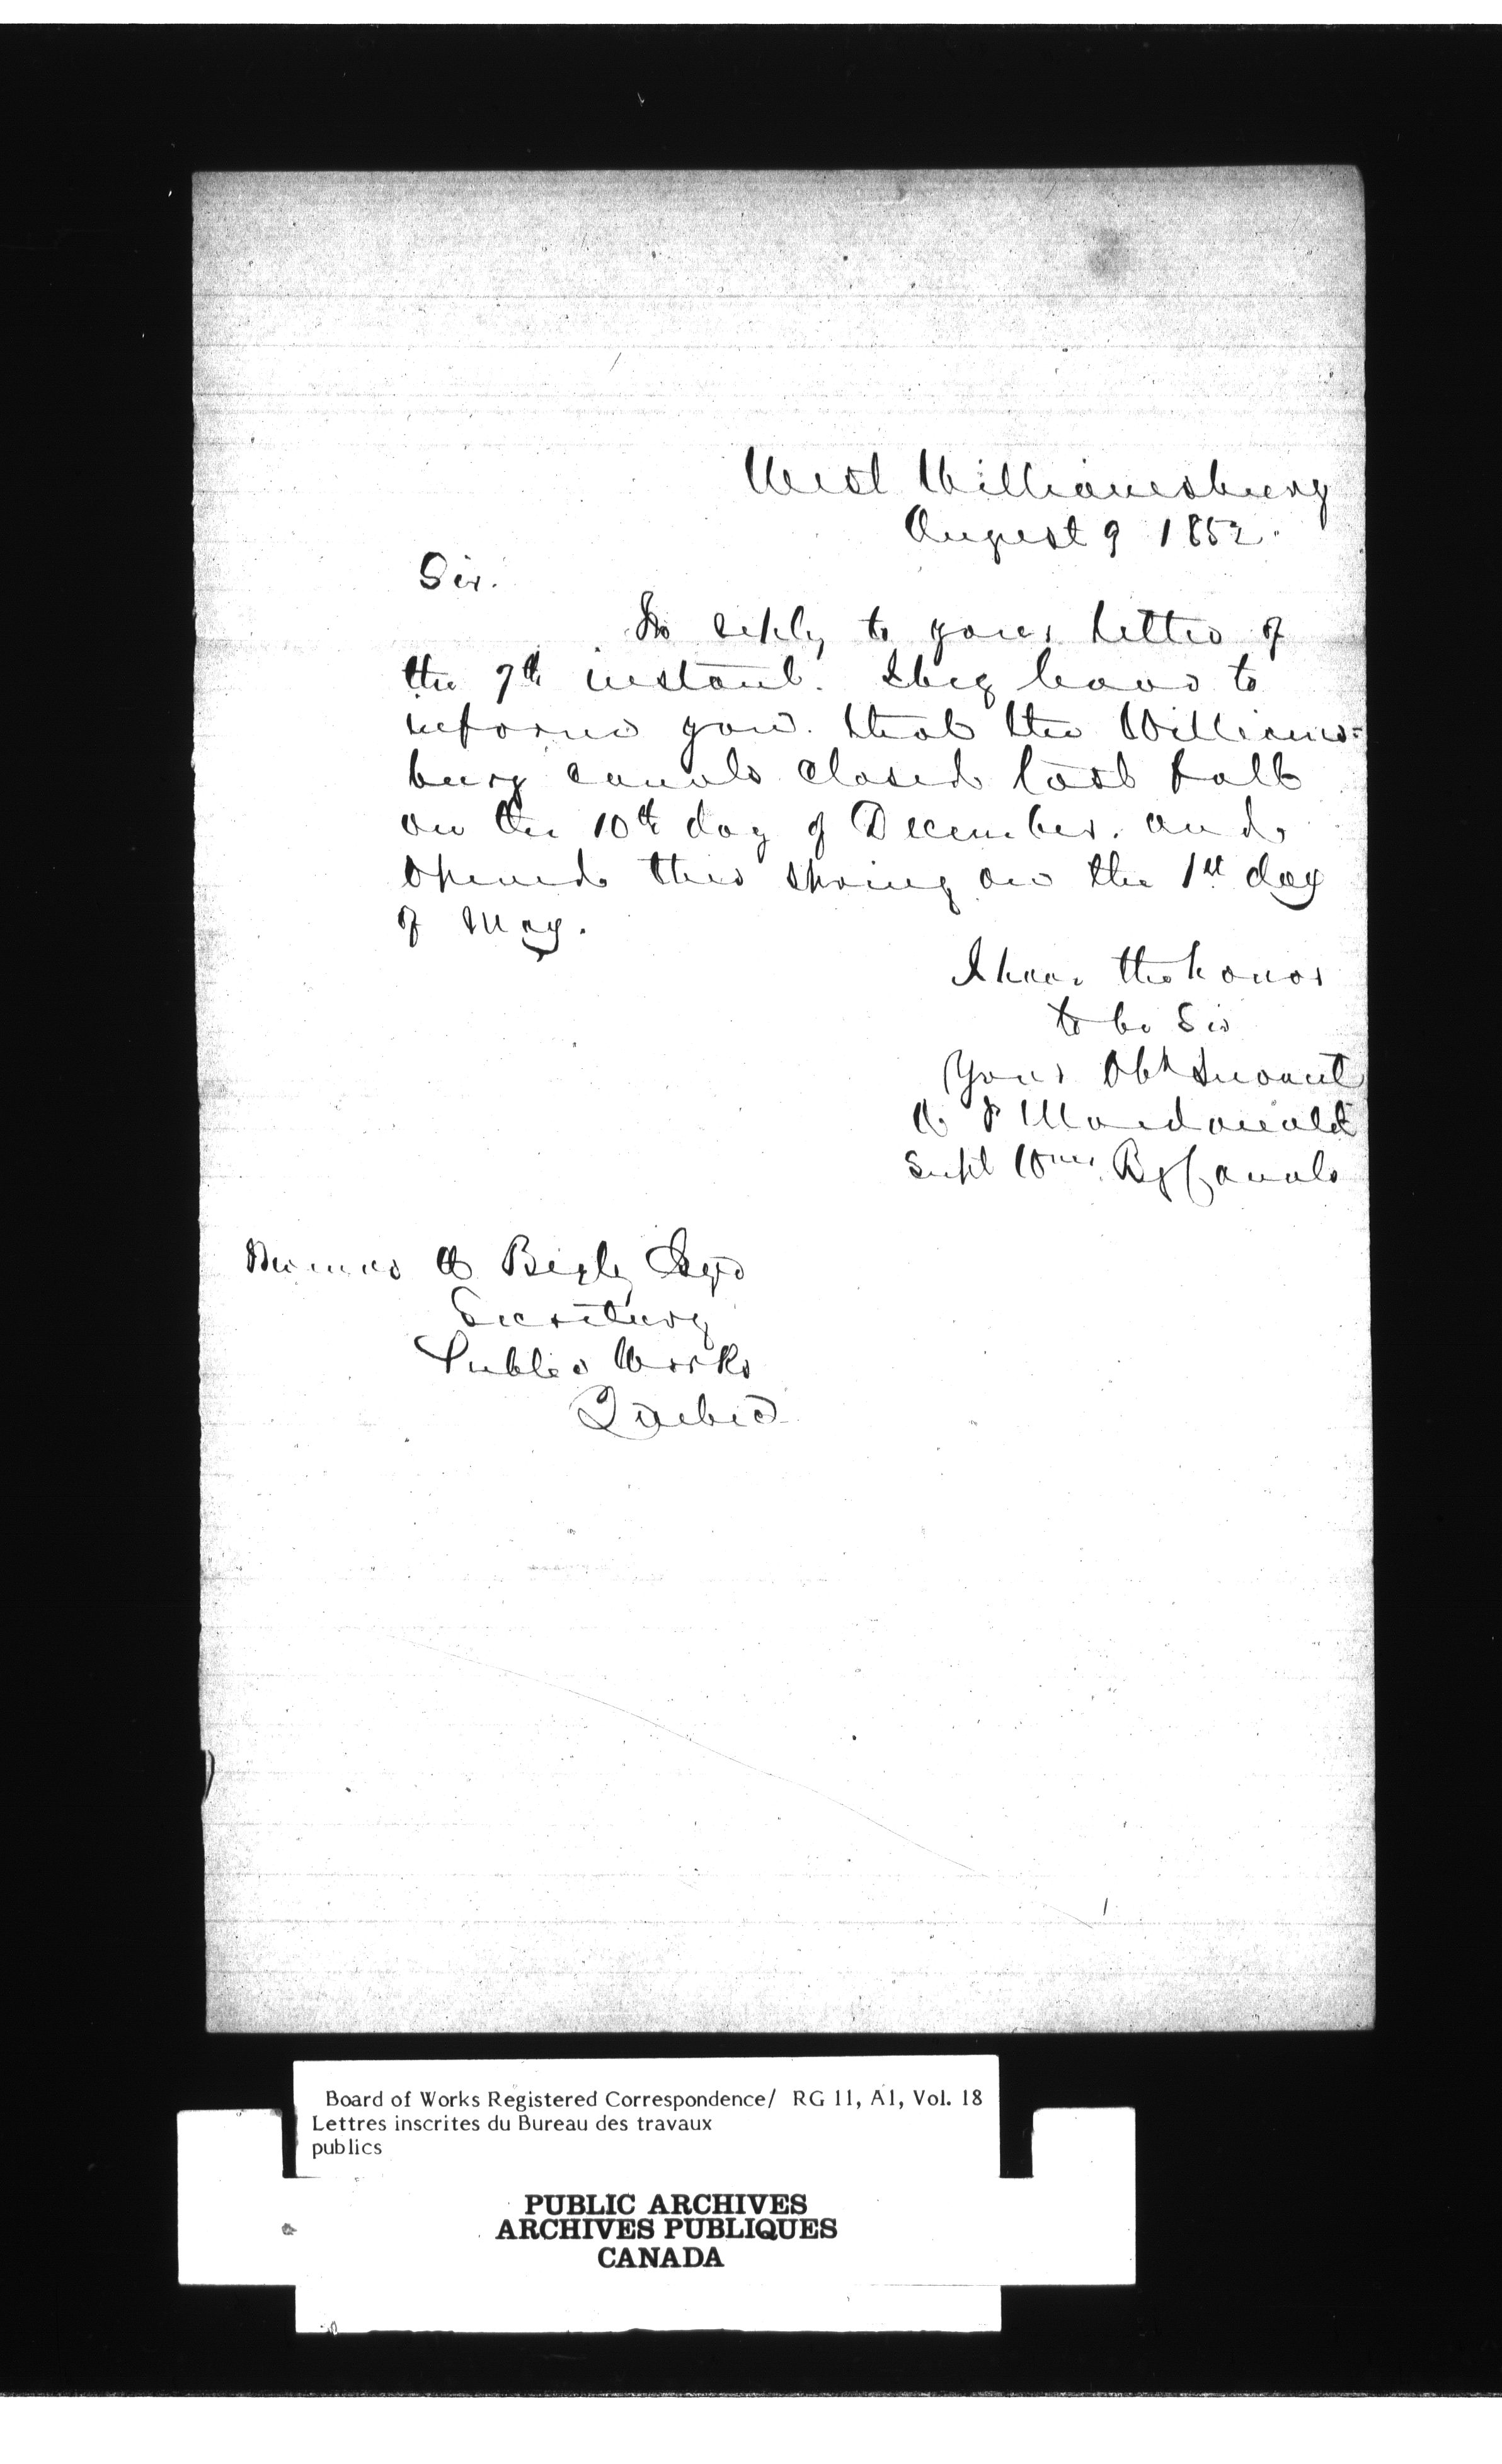 West Williamsburg
August 9 1852.
Sir.
In reply to your letter of
the 7th instant. I beg leave to
inform you that the Williams=
burg canals closed last fall
on the 10th day of December. and
opened this spring on the 1st day
of May.
I have the honor
to be Sir
Your Obt Servant
Macdonald
Supt Wms Bg Canals
Thomas A Begly Esqr
Secretary
Public Works
Quebec
Board of Works Registered Correspondence/ RG 11, A1, Vol. 18
Lettres inscrites du Bureau des travaux
publics
PUBLIC ARCHIVES
ARCHIVES PUBLIQUES
CANADA